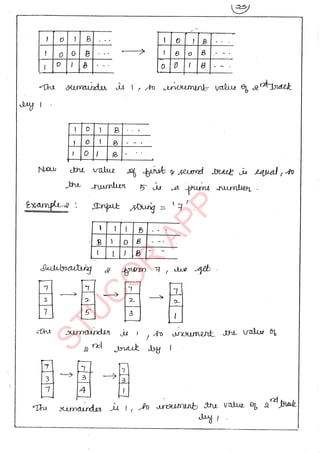 (231)
1 0 1 B - - - 1 0 1 B - - -
1 0 0 B - - - → 1 B 0 B - - -
1 0 1 B - - - 0 0 1 B - - -
The remainder is 1, so increment value of 2nd track
by 1.
1 0 1 B - - -
1 0 1 B - - -
1 0 1 B - - -
Now the value of first & second track is equal, so
the number 5 is a prime number.
Example 2: Input string = '7'
1 1 1 B - - -
B 1 0 B - - -
1 1 1 B - - -
Subtracting 2 from 7, we get.
7 → 7 → 7 → 7
2 2 2 2
7 5 3 1
The remainder is 1, so increment the value of
2nd track by 1
7 → 7 → 7
3 3 3
7 4 1
The remainder is 1, so increment the value of 2nd track
by 1.
STUCOR APP